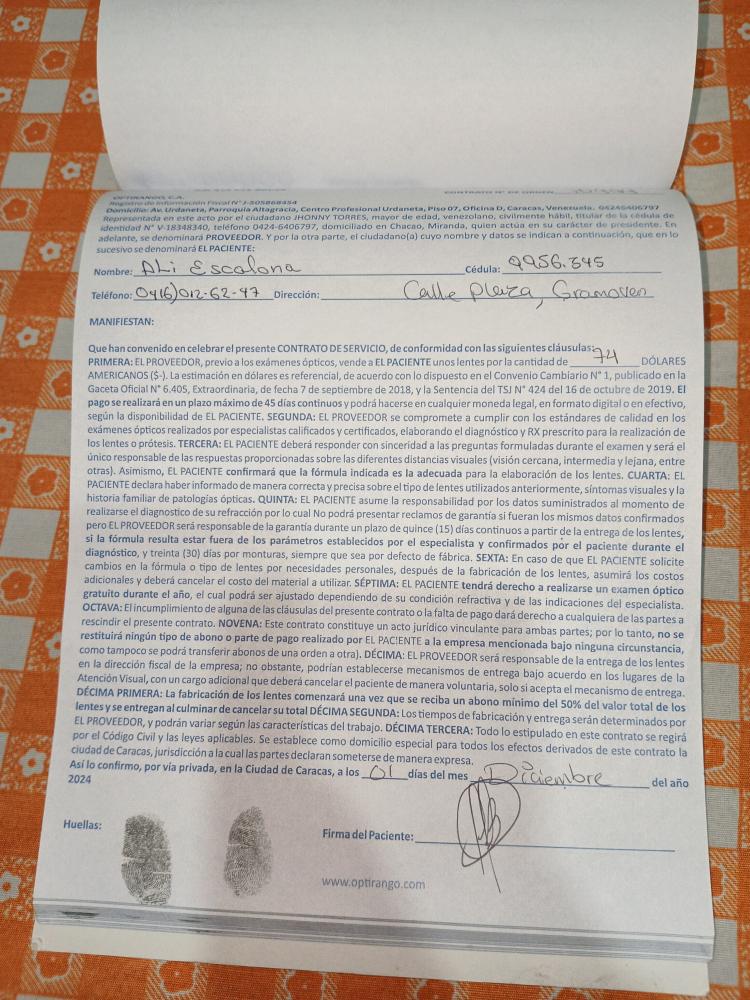 OPTIRANGO, C.A.
Registro de Información Fiscal N° J-505868454
Domicilio: Av. Urdaneta, Parroquia Altagracia, Centro Profesional Urdaneta, Piso 07, Oficina D, Caracas, Venezuela. 04246406797
Representada en este acto por el ciudadano JHONNY TORRES, mayor de edad, venezolano, civilmente hábil, titular de la cédula de
identidad N° V-18348340, teléfono 0424-6406797, domiciliado en Chacao, Miranda, quien actúa en su carácter de presidente. En
adelante, se denominará PROVEEDOR. Y por la otra parte, el ciudadano(a) cuyo nombre y datos se indican a continuación, que en lo
sucesivo se denominará EL PACIENTE:
Nombre: ALi Escalona Cédula: 9956.345
Teléfono: 0416)012-62-47 Dirección: Calle Plaza, Gramoven
MANIFIESTAN:
Que han convenido en celebrar el presente CONTRATO DE SERVICIO, de conformidad con las siguientes cláusulas:
PRIMERA: EL PROVEEDOR, previo a los exámenes ópticos, vende a EL PACIENTE unos lentes por la cantidad de 74 DÓLARES
AMERICANOS ($-). La estimación en dólares es referencial, de acuerdo con lo dispuesto en el Convenio Cambiario N° 1, publicado en la
Gaceta Oficial N° 6.405, Extraordinaria, de fecha 7 de septiembre de 2018, y la Sentencia del TSJ N° 424 del 16 de octubre de 2019. El
pago se realizará en un plazo máximo de 45 días continuos y podrá hacerse en cualquier moneda legal, en formato digital o en efectivo,
según la disponibilidad de EL PACIENTE. SEGUNDA: EL PROVEEDOR se compromete a cumplir con los estándares de calidad en los
exámenes ópticos realizados por especialistas calificados y certificados, elaborando el diagnóstico y RX prescrito para la realización de
los lentes o prótesis. TERCERA: EL PACIENTE deberá responder con sinceridad a las preguntas formuladas durante el examen y será el
único responsable de las respuestas proporcionadas sobre las diferentes distancias visuales (visión cercana, intermedia y lejana, entre
otras). Asimismo, EL PACIENTE confirmará que la fórmula indicada es la adecuada para la elaboración de los lentes. CUARTA: EL
PACIENTE declara haber informado de manera correcta y precisa sobre el tipo de lentes utilizados anteriormente, síntomas visuales y la
historia familiar de patologías ópticas. QUINTA: EL PACIENTE asume la responsabilidad por los datos suministrados al momento de
realizarse el diagnostico de su refracción por lo cual No podrá presentar reclamos de garantía si fueran los mismos datos confirmados
pero EL PROVEEDOR será responsable de la garantía durante un plazo de quince (15) días continuos a partir de la entrega de los lentes,
si la fórmula resulta estar fuera de los parámetros establecidos por el especialista y confirmados por el paciente durante el
diagnóstico, y treinta (30) días por monturas, siempre que sea por defecto de fábrica. SEXTA: En caso de que EL PACIENTE solicite
cambios en la fórmula o tipo de lentes por necesidades personales, después de la fabricación de los lentes, asumirá los costos
adicionales y deberá cancelar el costo del material a utilizar. SÉPTIMA: EL PACIENTE tendrá derecho a realizarse un examen óptico
gratuito durante el año, el cual podrá ser ajustado dependiendo de su condición refractiva y de las indicaciones del especialista.
OCTAVA: El incumplimiento de alguna de las cláusulas del presente contrato o la falta de pago dará derecho a cualquiera de las partes a
rescindir el presente contrato. NOVENA: Este contrato constituye un acto jurídico vinculante para ambas partes; por lo tanto, no se
restituirá ningún tipo de abono o parte de pago realizado por EL PACIENTE a la empresa mencionada bajo ninguna circunstancia,
como tampoco se podrá transferir abonos de una orden a otra). DÉCIMA: EL PROVEEDOR será responsable de la entrega de los lentes
en la dirección fiscal de la empresa; no obstante, podrían establecerse mecanismos de entrega bajo acuerdo en los lugares de la
Atención Visual, con un cargo adicional que deberá cancelar el paciente de manera voluntaria, solo si acepta el mecanismo de entrega.
DÉCIMA PRIMERA: La fabricación de los lentes comenzará una vez que se reciba un abono mínimo del 50% del valor total de los
lentes y se entregan al culminar de cancelar su total DÉCIMA SEGUNDA: Los tiempos de fabricación y entrega serán determinados por
EL PROVEEDOR, y podrán variar según las características del trabajo. DÉCIMA TERCERA: Todo lo estipulado en este contrato se regirá
por el Código Civil y las leyes aplicables. Se establece como domicilio especial para todos los efectos derivados de este contrato la
ciudad de Caracas, jurisdicción a la cual las partes declaran someterse de manera expresa.
Así lo confirmo, por vía privada, en la Ciudad de Caracas, a los 01 días del mes Diciembre del año
2024
Huellas:
Firma del Paciente:
www.optirango.com